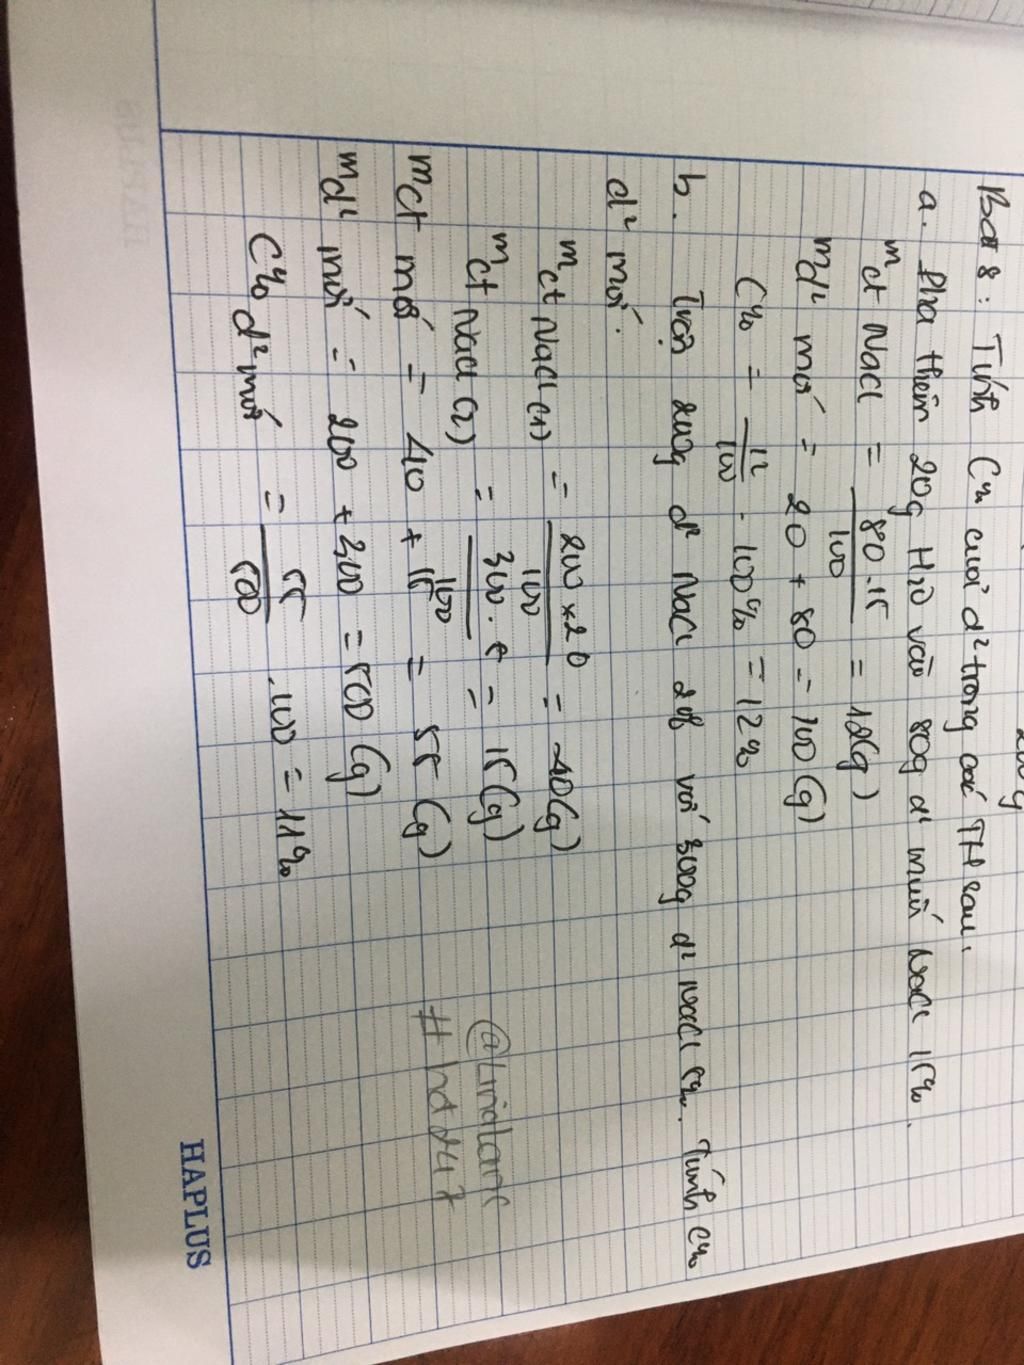 Bài 8: Tính C% của d² trong các TH sau.
a. Pha thêm 20g H2O vào 80g d² muối NaCl 15%.
mct NaCl = 80.15 / 100 = 12(g)
md² mới = 20 + 80 = 100(g)
C% = 12 / 100 . 100% = 12%
b. Trộn 200g d² NaCl 20% với 300g d² NaCl 5%. Tính C%
d² mới.
mct NaCl (1) = 200 x 20 / 100 = 40(g)
mct NaCl (2) = 300.5 / 100 = 15(g)
mct mới = 40 + 15 = 55(g)
md² mới = 200 + 300 = 500(g)
C% d² mới = 55 / 500 .100 = 11%
# hd247
HAPLUS